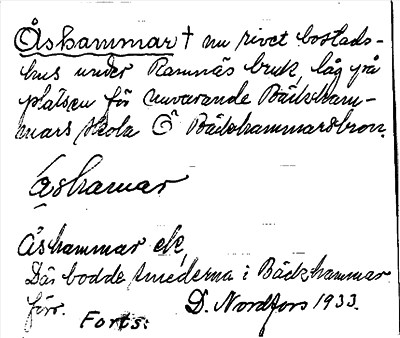 Åshammar † nu rivet bostads-
hus under Ramnäs bruk, låg på
platsen för nuvarande Bäckham-
mars skola Ö Bäckhammarsbron.
Åshamar
Åshammar
Där bodde smederna i Bäckhammar
förr. D. Nordfors 1933.
Forts: